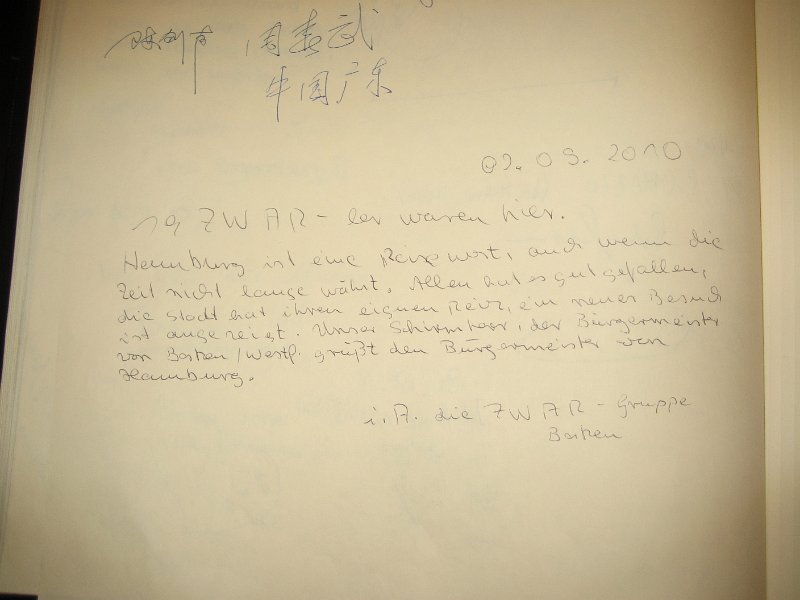 周春武
中国广东
09.09.2010
19 ZWAR-ler waren hier.
Hamburg ist eine Reise wert, auch wenn die
Zeit nicht lange währt. Allen hat es gut gefallen,
die Stadt hat ihren eignen Reiz, ein neuer Besuch
ist angezeigt. Unser Schirmherr, der Bürgermeister
von Borken/Westf. grüßt den Bürgermeister von
Hamburg.
i.A. die ZWAR-Gruppe
Borken